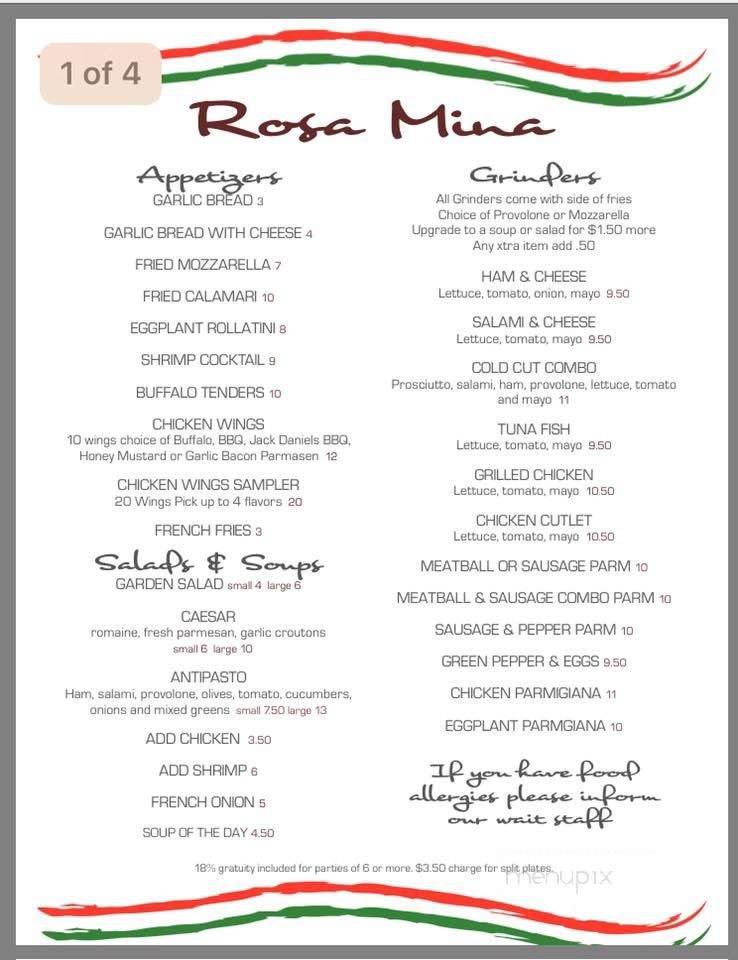 1 of 4
Rosa Mina
Appetizers
GARLIC BREAD 3
GARLIC BREAD WITH CHEESE 4
FRIED MOZZARELLA 7
FRIED CALAMARI 10
EGGPLANT ROLLATINI 8
SHRIMP COCKTAIL 9
BUFFALO TENDERS 10
CHICKEN WINGS
10 wings choice of Buffalo, BBQ, Jack Daniels BBQ,
Honey Mustard or Garlic Bacon Parmasen 12
CHICKEN WINGS SAMPLER
20 Wings Pick up to 4 flavors 20
FRENCH FRIES 3
Salads & Soups
GARDEN SALAD small 4 large 6
CAESAR
romaine, fresh parmesan, garlic croutons
small 6 large 10
ANTIPASTO
Ham, salami, provolone, olives, tomato, cucumbers,
onions and mixed greens small 7.50 large 13
ADD CHICKEN 3.50
ADD SHRIMP 6
FRENCH ONION 5
SOUP OF THE DAY 4.50
Grinders
All Grinders come with side of fries
Choice of Provolone or Mozzarella
Upgrade to a soup or salad for $1.50 more
Any xtra item add .50
HAM & CHEESE
Lettuce, tomato, onion, mayo 9.50
SALAMI & CHEESE
Lettuce, tomato, mayo 9.50
COLD CUT COMBO
Prosciutto, salami, ham, provolone, lettuce, tomato
and mayo 11
TUNA FISH
Lettuce, tomato, mayo 9.50
GRILLED CHICKEN
Lettuce, tomato, mayo 10.50
CHICKEN CUTLET
Lettuce, tomato, mayo 10.50
MEATBALL OR SAUSAGE PARM 10
MEATBALL & SAUSAGE COMBO PARM 10
SAUSAGE & PEPPER PARM 10
GREEN PEPPER & EGGS 9.50
CHICKEN PARMIGIANA 11
EGGPLANT PARMGIANA 10
If you have food
allergies please inform
our wait staff
18% gratuity included for parties of 6 or more. $3.50 charge for split plates.
menupix